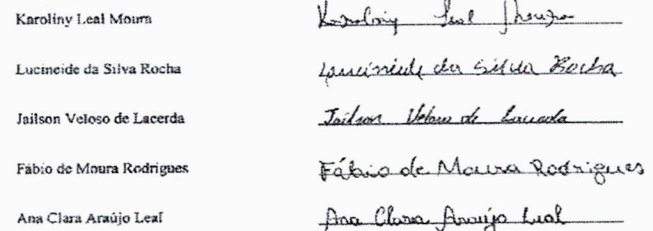 Karoliny Leal Moura Karoliny Leal Moura
Lucineide da Silva Rocha Lucineide da Silva Rocha
Jailson Veloso de Lacerda Jailson Veloso de Lacerda
Fábio de Moura Rodrigues Fábio de Moura Rodrigues
Ana Clara Araújo Leal Ana Clara Araújo Leal